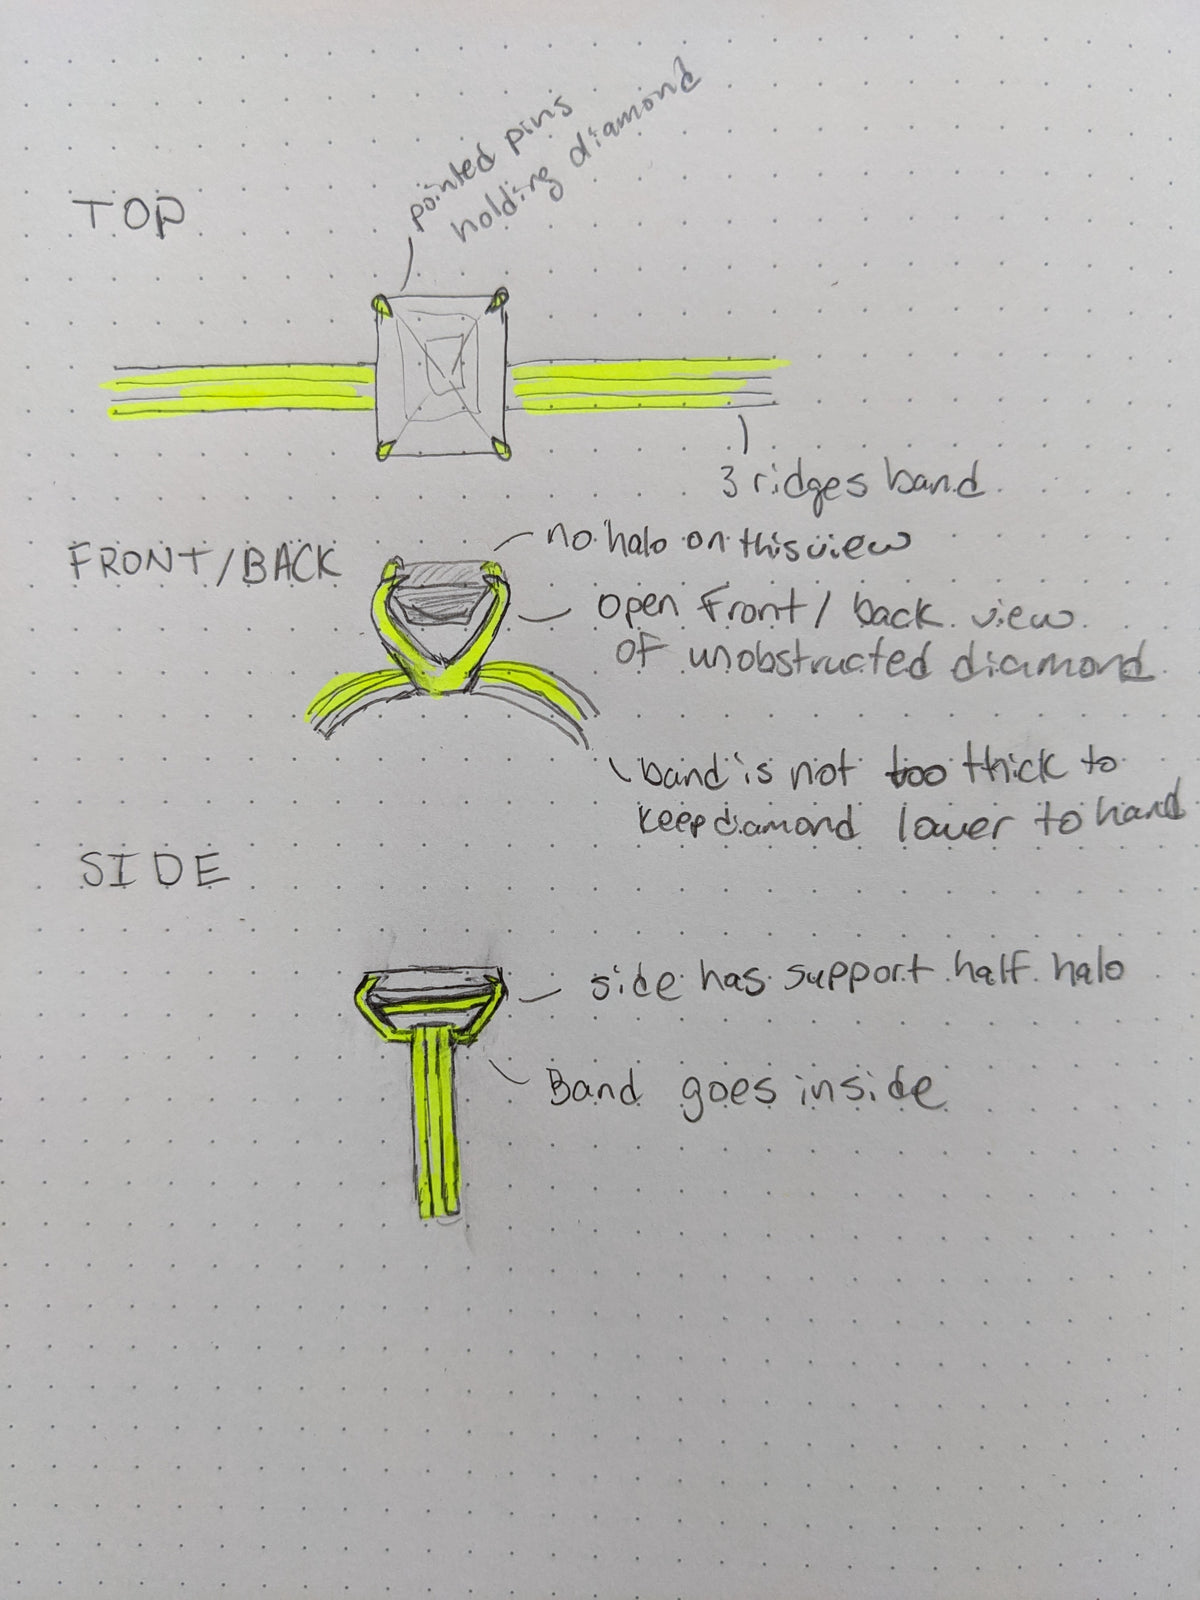 TOP
pointed pins
holding diamond
3 ridges band
FRONT/BACK
no halo on this view
open front/back view
of unobstructed diamond
band is not too thick to
keep diamond lower to hand
SIDE
side has support half halo
Band goes inside